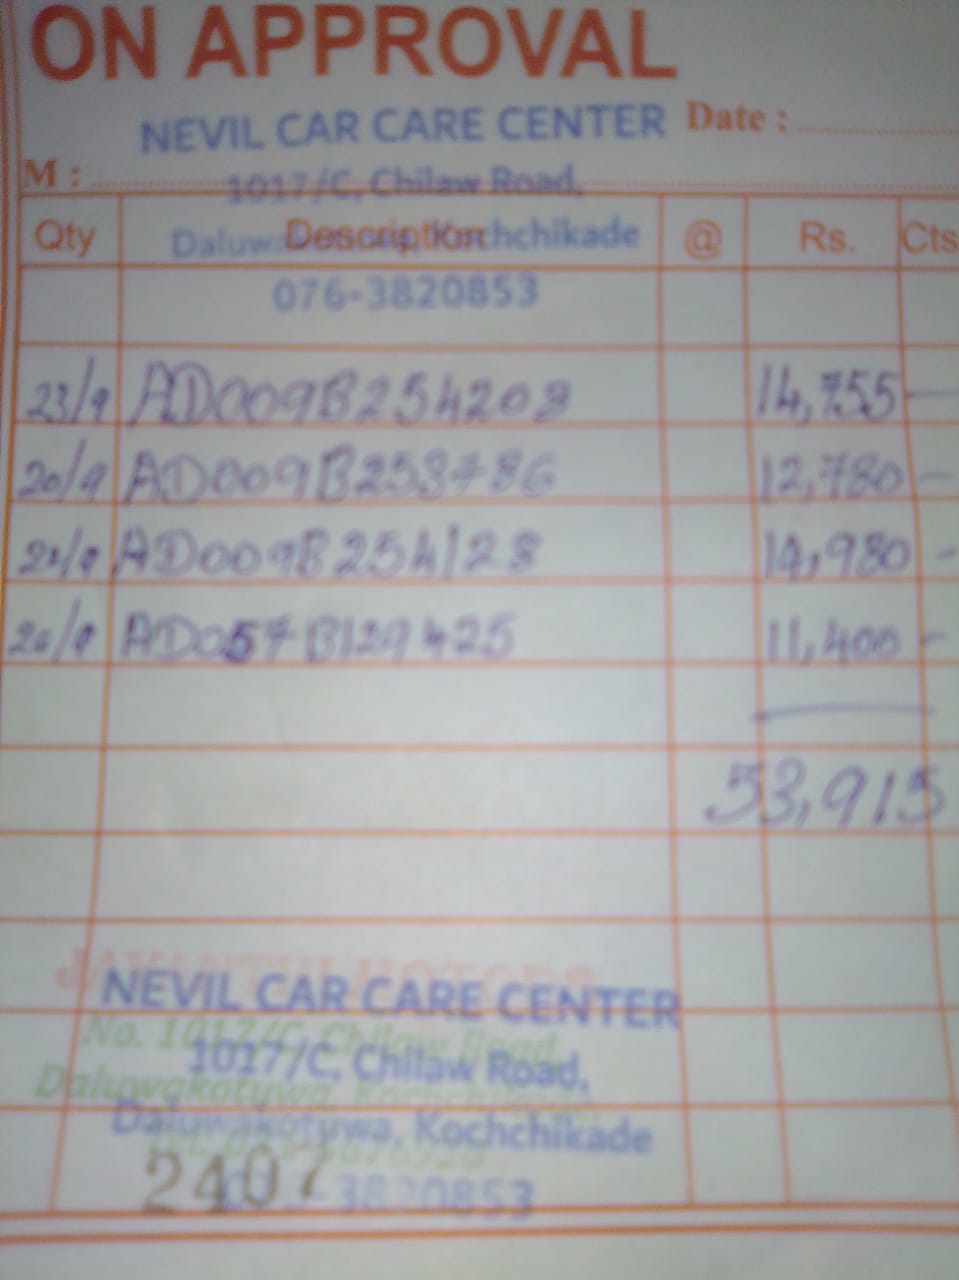 ON APPROVAL
NEVIL CAR CARE CENTER Date :
M :
1017/C, Chilaw Road,
Qty Description @ Rs. Cts
Kochchikade
076-3820853
23/9 AD009B254208 14,755 -
20/9 AD009B253786 12,780 -
AD009B254128 14,980 -
AD057B129425 11,400 -
53,915
NEVIL CAR CARE CENTER
No. 1017/C, Chilaw Road,
1017/C, Chilaw Road,
Daluwakotuwa,
Daluwakotuwa, Kochchikade
2407
3820853